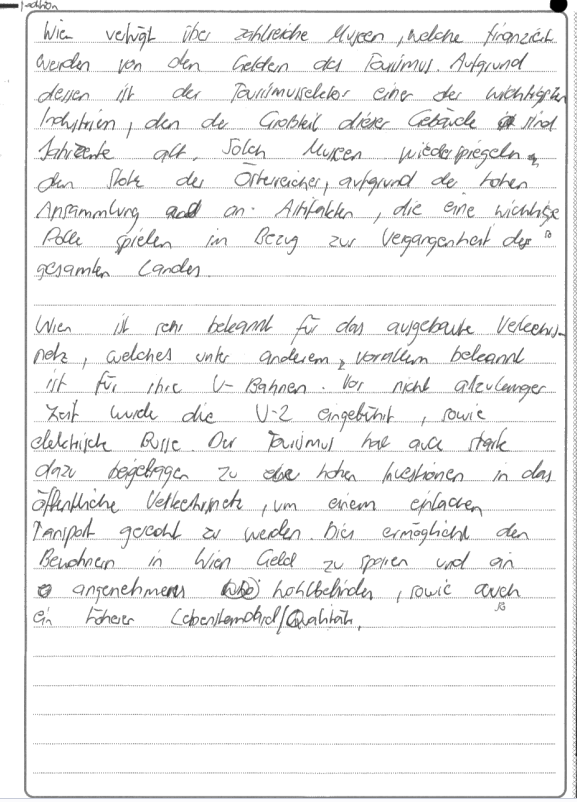 edition
Wien verfügt über zahlreiche Museen, welche finanziert
werden von den Geldern des Tourimus. Aufgrund
dessen ist der Tourimussektor einer der wichtigsten
Industrien, den der Großteil dieser Gebäude sind
Jahrzente alt. Solch Museen wiederspiegeln
den Stolz der Östereicher, aufgrund der hohen
Ansammlung an Artifakten, die eine wichtige
Rolle spielen im Bezug zur Vergangenheit des
gesamten Landes.
Wien ist sehr bekannt für das ausgebaute Verkehrs-
netz, welches unter anderem, vorallem bekannt
ist für ihre U-Bahnen. Vor nicht allzulanger
Zeit wurde die U-2 eingeführt, sowie
elektrische Busse. Der Tourimus hat auch stark
dazu beigetragen zu hohen Investionen in das
öffentliche Verkehrsnetz, um einem einfachen
Transport gerecht zu werden. Dies ermöglicht den
Bewohnern in Wien Geld zu sparen und ein
angenehmens Wohlbefinden, sowie auch
ein höherer Lebenstandard/Qualität.